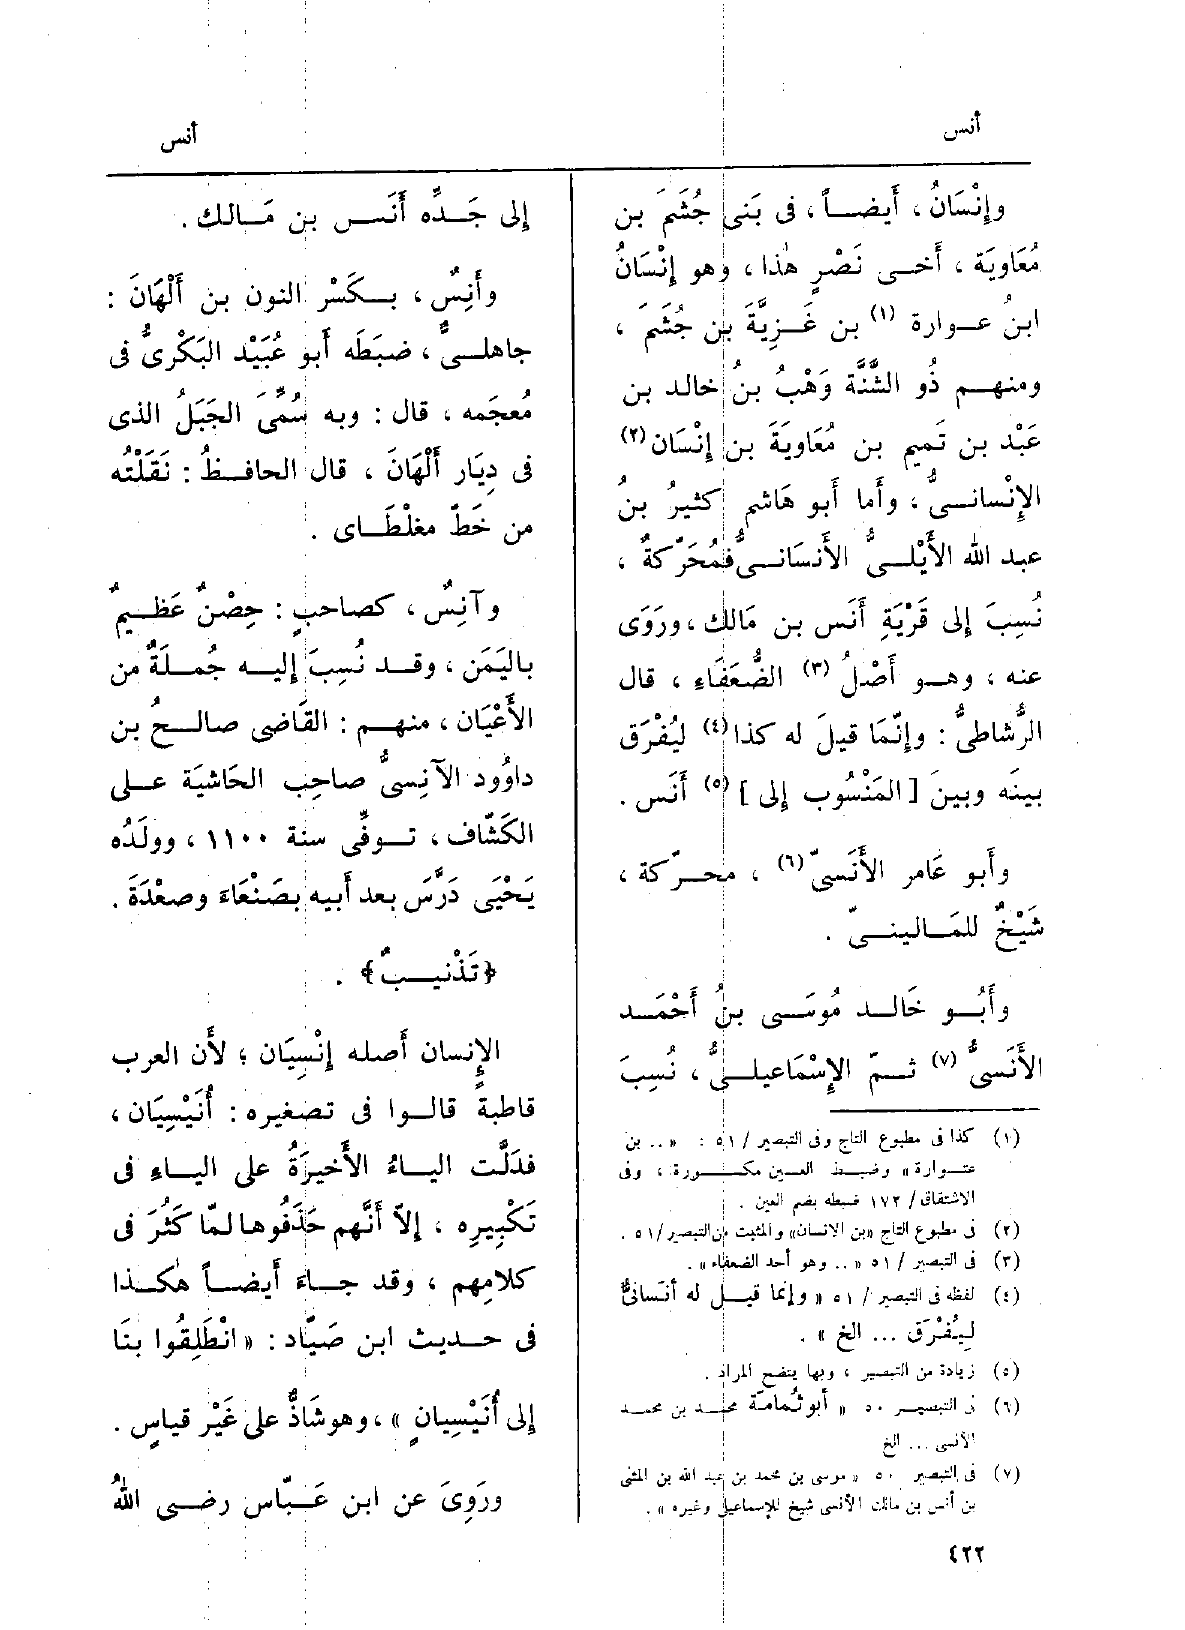 أنس
أنس
وإنْسَانُ ، أَيضاً ، فى بَنى جُشَمَ بن
مُعَاوِيَة ، أَخى نَصْرٍ هٰذا ، وهو إنْسَانُ
ابنُ عوارة (١) بن غَزِيَّةَ بن جُشَمَ ،
ومنهم ذُو الشَّنَّة وَهْبُ بنُ خالد بن
عَبْد بن تَميم بن مُعَاويَةَ بن إِنْسَان (٢)
الإنْسانىُّ ، وأَما أَبو هَاشم كثيرُ بنُ
عبد الله الأَيْلىُّ الأَنسَانىُّ فمُحَرّكةٌ ،
نُسِبَ إلى قَرْيَةِ أَنَس بن مَالك ، ورَوَى
عنه ، وهو أَصْلُ (٣) الضُّعَفَاءِ ، قال
الرُّشاطىُّ : وإِنَّمَا قيلَ له كذا (٤) ليُفْرَق
بينَه وبينَ [ المَنْسُوب إلى ] (٥) أَنَس .
وأَبو عَامر الأَنَسىّ (٦) ، محرّكة ،
شَيْخٌ للمَالينىّ .
وأَبُو خَالد مُوسَى بنُ أَحْمَد
الأَنَسىُّ (٧) ثمّ الإسْمَاعيلىُّ ، نُسِبَ
(١) كذا فى مطبوع التاج وفى التبصير / ٥١ : « .. بن
عتوارة » وضبط العين مكسورة ، وفى
الاشتقاق / ١٧٢ ضبطه بضم العين .
(٢) فى مطبوع التاج «بن الانسان» والمثبت من التبصير / ٥١ .
(٣) فى التبصير / ٥١ « .. وهو أحد الضعفاء » .
(٤) لفظه فى التبصير / ٥١ « وإنما قيل له أنْسانىٌّ
ليُفْرَق ... الخ » .
(٥) زيادة من التبصير ، وبها يتضح المراد .
(٦) فى التبصير ٥٠ « أبو ثُمامَة محمد بن محمد
الأنسى ... الخ
(٧) فى التبصير ٥٠ « موسى بن محمد بن عبد الله بن المثنى
بن أنس بن مالك الأنسى شيخ للإسماعيلى وغيره » .
إلى جَدِّه أَنَس بن مَالك .
وأَنِسٌ ، بكَسْر النون بن أَلْهَانَ :
جاهلىٌّ ، ضبَطَه أَبو عُبَيْد البَكْرىُّ فى
مُعجَمه ، قال : وبه سُمِّىَ الجَبَلُ الذى
فى دِيَار أَلْهَانَ ، قال الحافظُ : نَقَلْتُه
من خَطّ مغلْطَاى .
وآنِسٌ ، كصاحبٍ : حِصْنٌ عَظيمٌ
باليَمَن ، وقد نُسِبَ إليه جُملَةٌ من
الأَعْيَان ، منهم : القَاضى صالحُ بن
داوُود الآنِسىُّ صاحِب الحَاشيَة على
الكَشّاف ، توفِّى سنة ١١٠٠ ، وولَدُه
يَحْيَى دَرَّسَ بعد أَبيه بصَنْعَاءَ وصعْدَةَ .
﴿تَذْنيبٌ﴾ .
الإنسان أَصله إنْسِيَان ؛ لأَن العرب
قاطبةً قالوا فى تصغيره : أُنَيْسِيَان ،
فدَلَّت الياءُ الأَخيرَةُ على الياءِ فى
تَكْبِيرِه ، إلاّ أَنَّهم حَذَفُوها لمّا كَثُرَ فى
كلامِهم ، وقد جاءَ أَيضاً هٰكذا
فى حديث ابن صَيّاد : « انْطَلِقُوا بنَا
إلى أُنَيْسِيانٍ » ، وهو شَاذٌّ على غَيْر قياسٍ .
ورَوِىَ عن ابن عَبّاس رضى اللهُ
٤٢٢